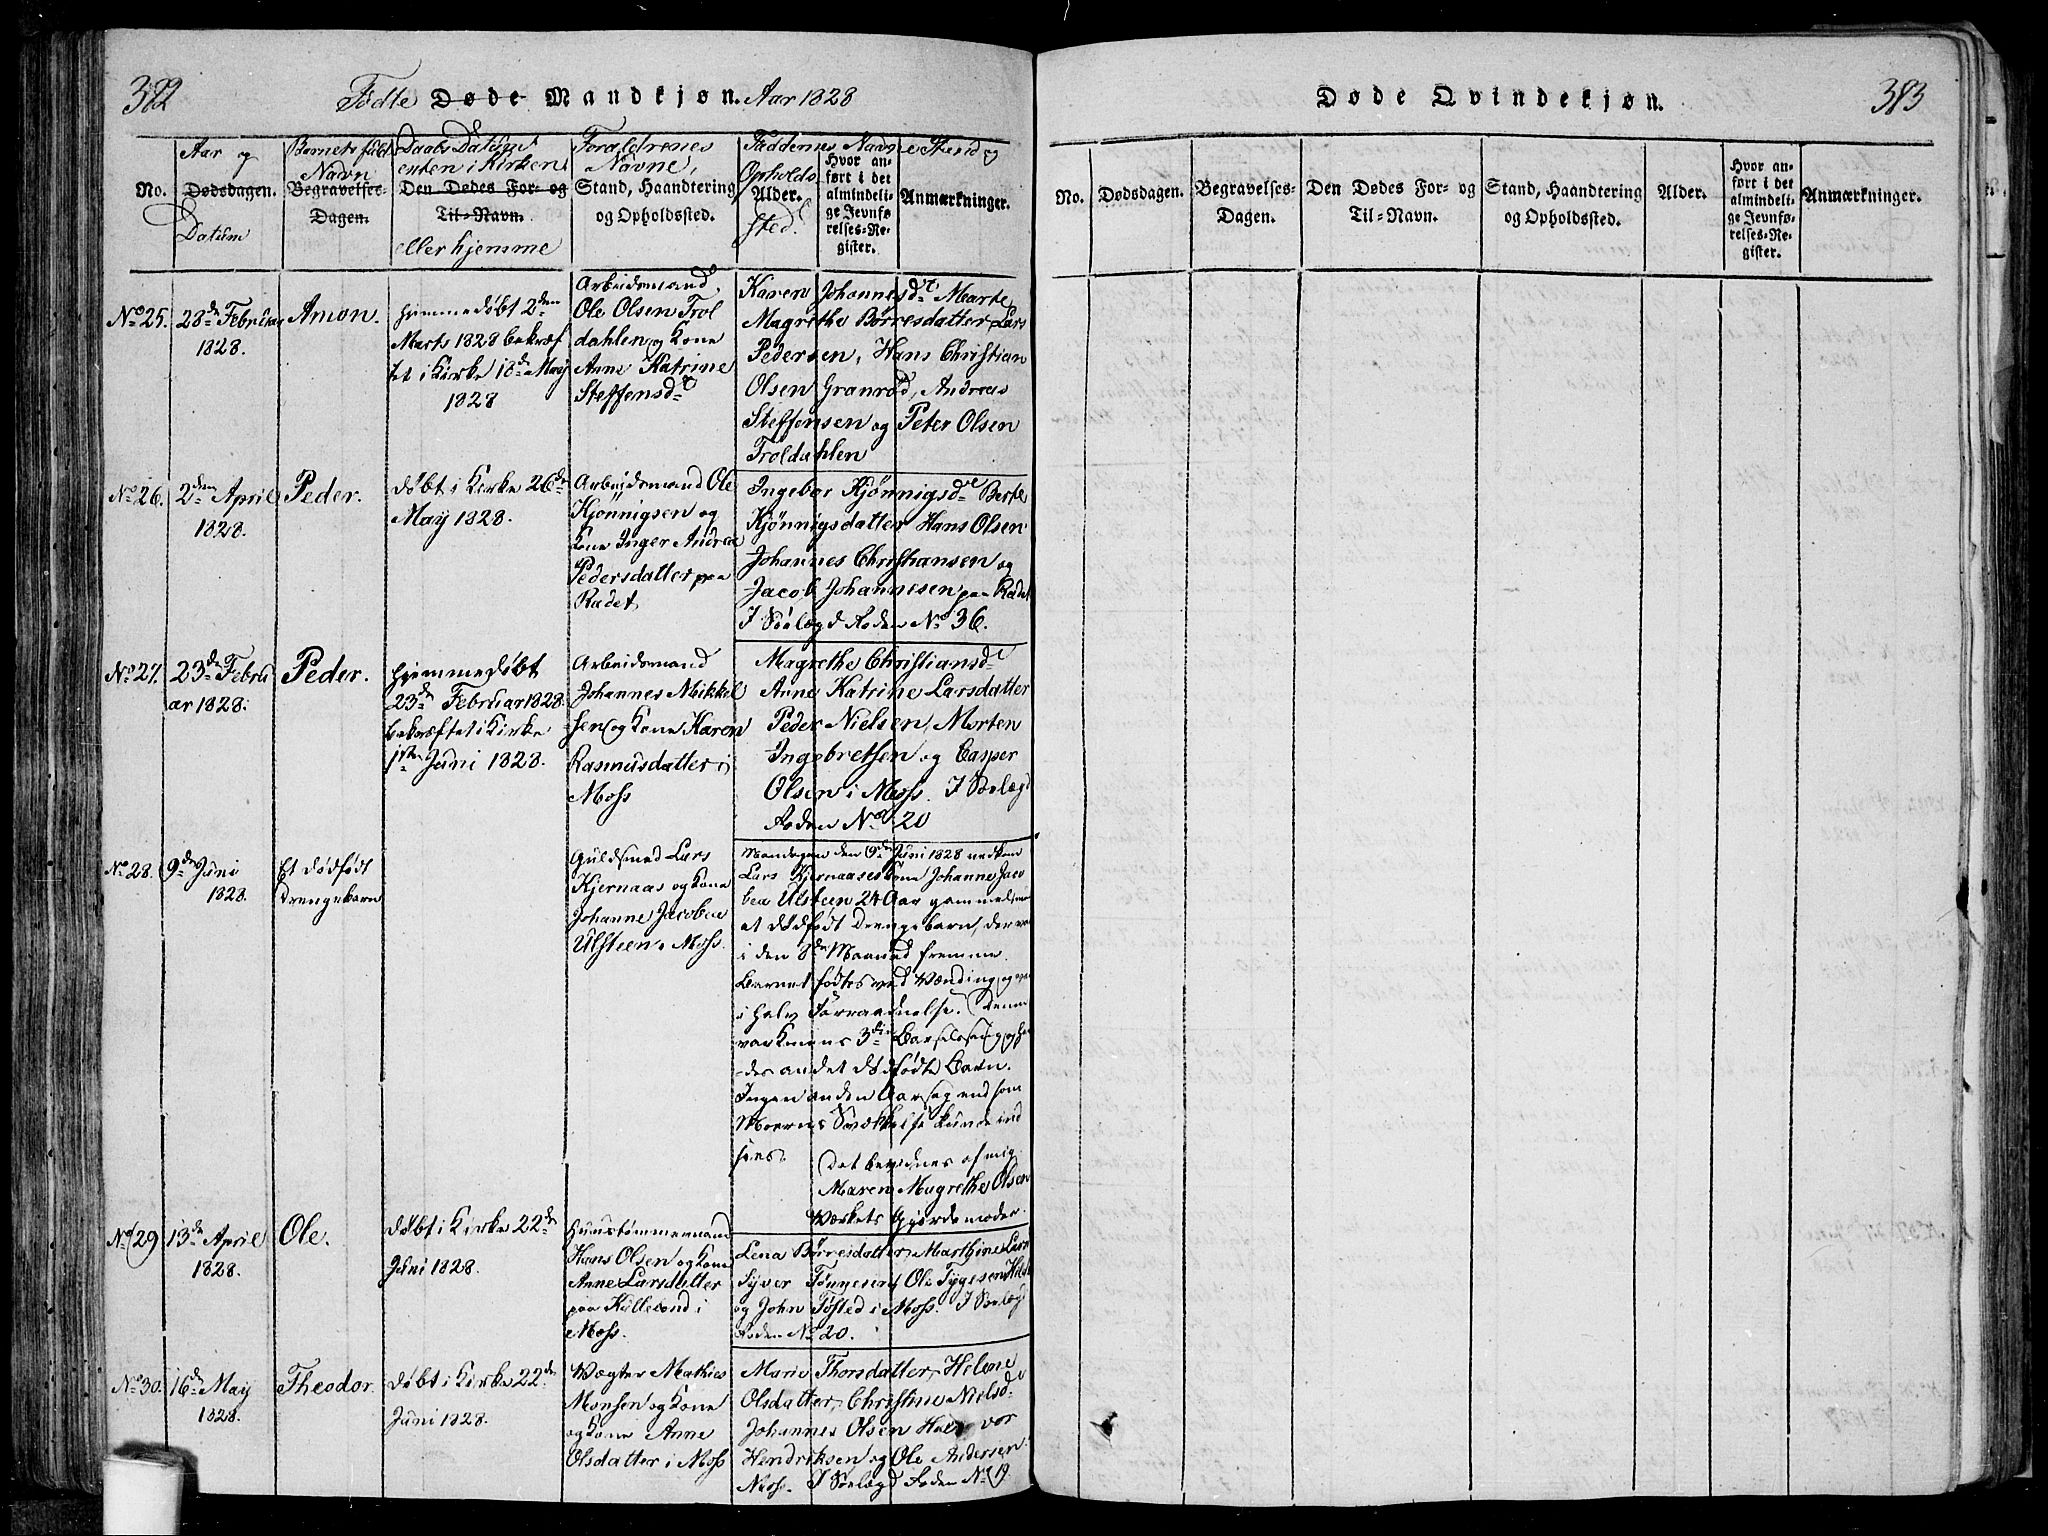 382
Fødte Døde Mandkjøn. Aar 1828
No.
Aar og
Dødsdagen.
Datum
Barnets fulde
Navn
Begravelses-
Dagen.
Daabs Datum
enten i Kirken
Den Dødes For- og
Til-Navn.
eller hjemme
Forældrenes
Navne,
Stand, Haandtering
og Opholdssted.
Faddernes Navne Stand og
Opholds
Alder.
sted.
Hvor an-
ført i det
almindeli-
ge Jevnfø-
relses-Re-
gister.
Anmærkninger.
No 25.
28de Februar
1828.
Amon.
hjemmedøbt 2den
Marts 1828 bekræf
tet i Kirke 18de May
1828
Arbeidsmand
Ole Olsen Trol
dahlen og Kone
Anne Katrine
Steffensdr
Karen Johannesdr Marte
Magrethe Børresdatter Lars
Pedersen, Hans Christian
Olsen Granrød, Andreas
Steffensen og Peter Olsen
Troldahlen
No 26.
2den April
1828.
Peder.
døbt i Kirke 26de
May 1828.
Arbeidsmand Ole
Kjönnigsen og
Kone Inger Andrea
Pedersdatter paa
Radet
Ingebor Kjönnigsdr Berte
Kjønnigsdatter Hans Olsen
Johannes Christiansen og
Jacob Johannesen paa Radet
I Sölægd Aoden No 36.
No 27.
23de Febru
ar 1828.
Peder.
hjemmedøbt
23de Februar 1828.
bekræftet i Kirke
1ste Juni 1828.
Arbeidsmand
Johannes Mikkel
sen og Kone Karen
Rasmusdatter i
Moss
Magrethe Christiansdr
Anne Katrine Larsdatter
Peder Nielsen, Morten
Ingebretsen og Casper
Olsen i Moss. I Sølægd
Aoden No 20
No 28.
9de Juni
1828.
Et dødfødt
Drengebarn
Guldsmed Lars
Kjernaas og Kone
Johanne Jacobea
Ulsteen i Moss.
Mandagen den 9de Juni 1828 nedkom
Lars Kjernaases Kone Johanne Jaco
bea Ulsteen 24 Aar gammel med
et dødfødt Drengebarn, der var
i den 8de Maaned fremme.
Barnet fødtes ved Vending og var
i halv Forraadnelse. Denne
var Konens 3die Barselseng og hen
des andet dødfødte Barn.
Ingen anden Aarsag end som
Moerens Svækkelse kunde ind
sees.
Det bevidnes af mig
Maren Magrethe Olsen
Værkets Gjordemoder.
No 29
13de April
1828.
Ole.
døbt i Kirke 22de
Juni 1828.
Huustømmermand
Hans Olsen og Kone
Anne Larsdatter
paa Kallesund i
Moss.
Lena Børresdatter, Marthine Lars
Syver Tønnesen, Ole Tygesen
og John Tøsted i Moss. I Sølægd
Aoden No 20.
No 30.
16de May
1828.
Theodor.
døbt i Kirke 22de
Juni 1828.
Vægter Mathies
Monsen og Kone
og Kone Anne
Olsdatter i Moss
Marie Thorsdatter, Helene
Olsdatter, Christine Nielsdr
Johannes Olsen Halvor
Hendriksen og Ole Andersen
Moss. I Sølægd Aoden No 19
383
Døde Qvindekjøn.
No.
Dødsdagen.
Begravelses-
Dagen.
Den Dødes For- og
Til-Navn.
Stand, Haandtering
og Opholdssted.
Alder.
Hvor an-
ført i det
almindeli-
ge Jevnfø-
relses-Re-
gister.
Anmærkninger.